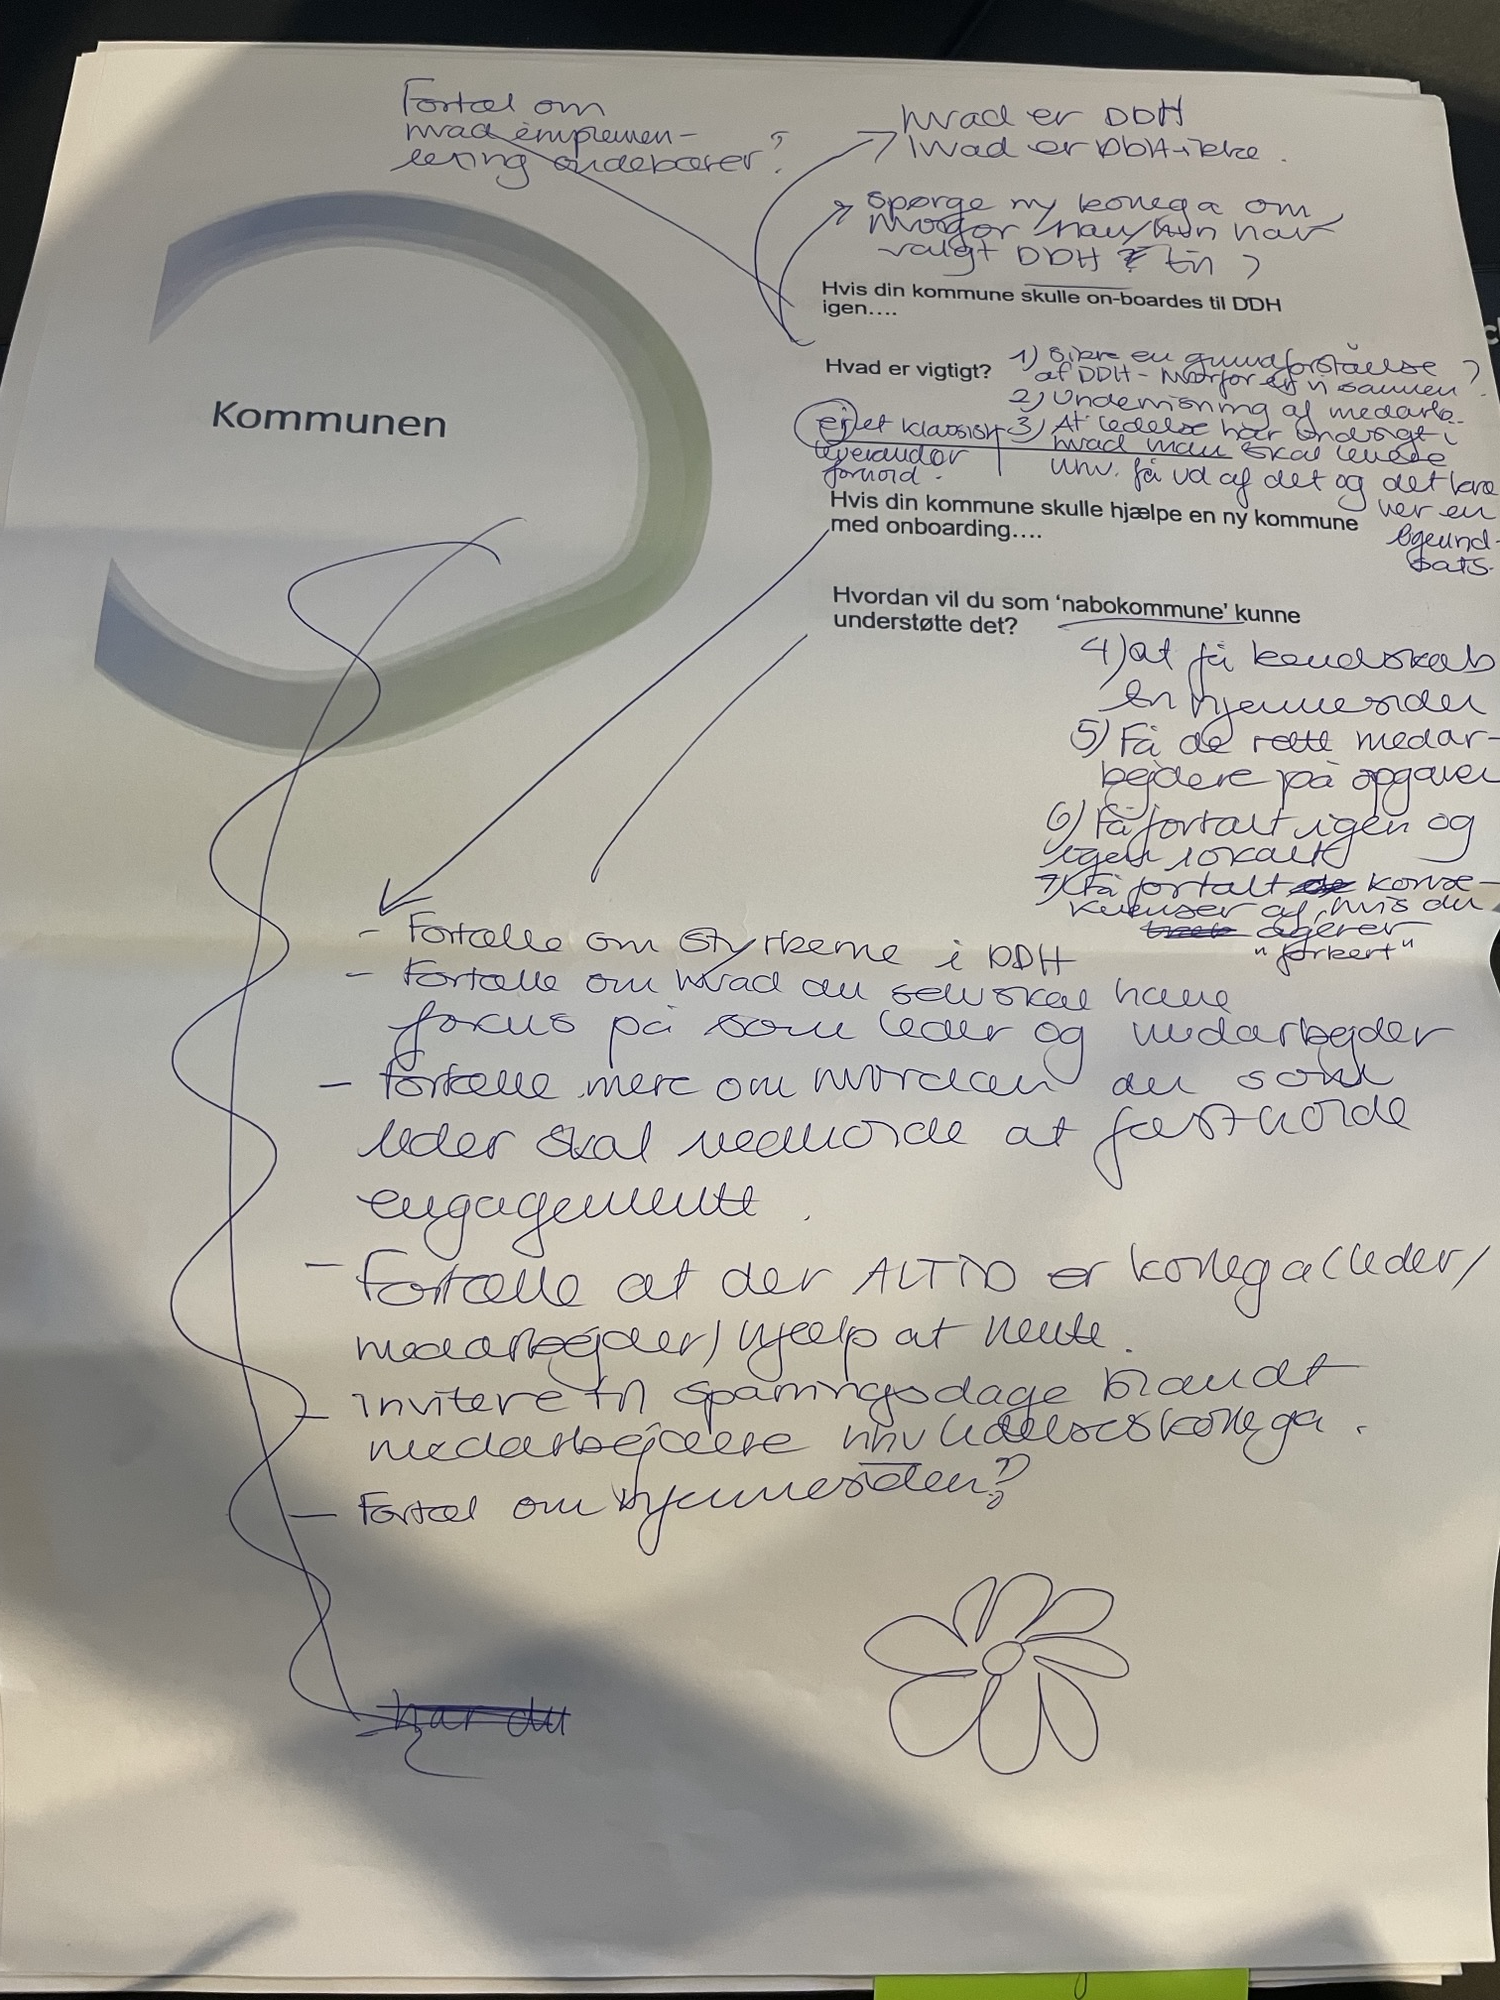 Fortæl om
hvad implemen-
tering indebærer?
hvad er DDH
hvad er DDH ikke.
spørge ny kollega om
hvorfor han/hun har
valgt DDH til?
Hvis din kommune skulle on-boardes til DDH
igen….
Hvad er vigtigt?
1) Sikre en grundforståelse
af DDH - hvorfor er vi sammen?
2) Undervisning af medarb..
3) At ledelse har indsigt i
hvad man skal kunne
hhv. få ud af det og det kræ
ver en
egen ind-
sats.
ej et klassisk
leverandør
forhold.
Hvis din kommune skulle hjælpe en ny kommune
med onboarding….
Hvordan vil du som ‘nabokommune’ kunne
understøtte det?
Kommunen
4) at få kendskab
til hjemmesiden
5) Få de rette medar-
bejdere på opgaven
6) Få fortalt igen og
igen lokalt
7) Få fortalt konse-
kvenser af, hvis du
agerer
"forkert"
- Fortælle om styrkerne i DDH
- Fortælle om hvad du selv skal have
fokus på som leder og medarbejder
- fortælle mere om hvordan du som
leder skal vedholde at fastholde
engagementet.
- Fortælle at der ALTID er kollega (leder/
medarbejder) hjælp at hente.
- invitere til sparringsdage blandt
medarbejdere hhv ledelseskollega.
- Fortæl om hjemmesiden?
har du